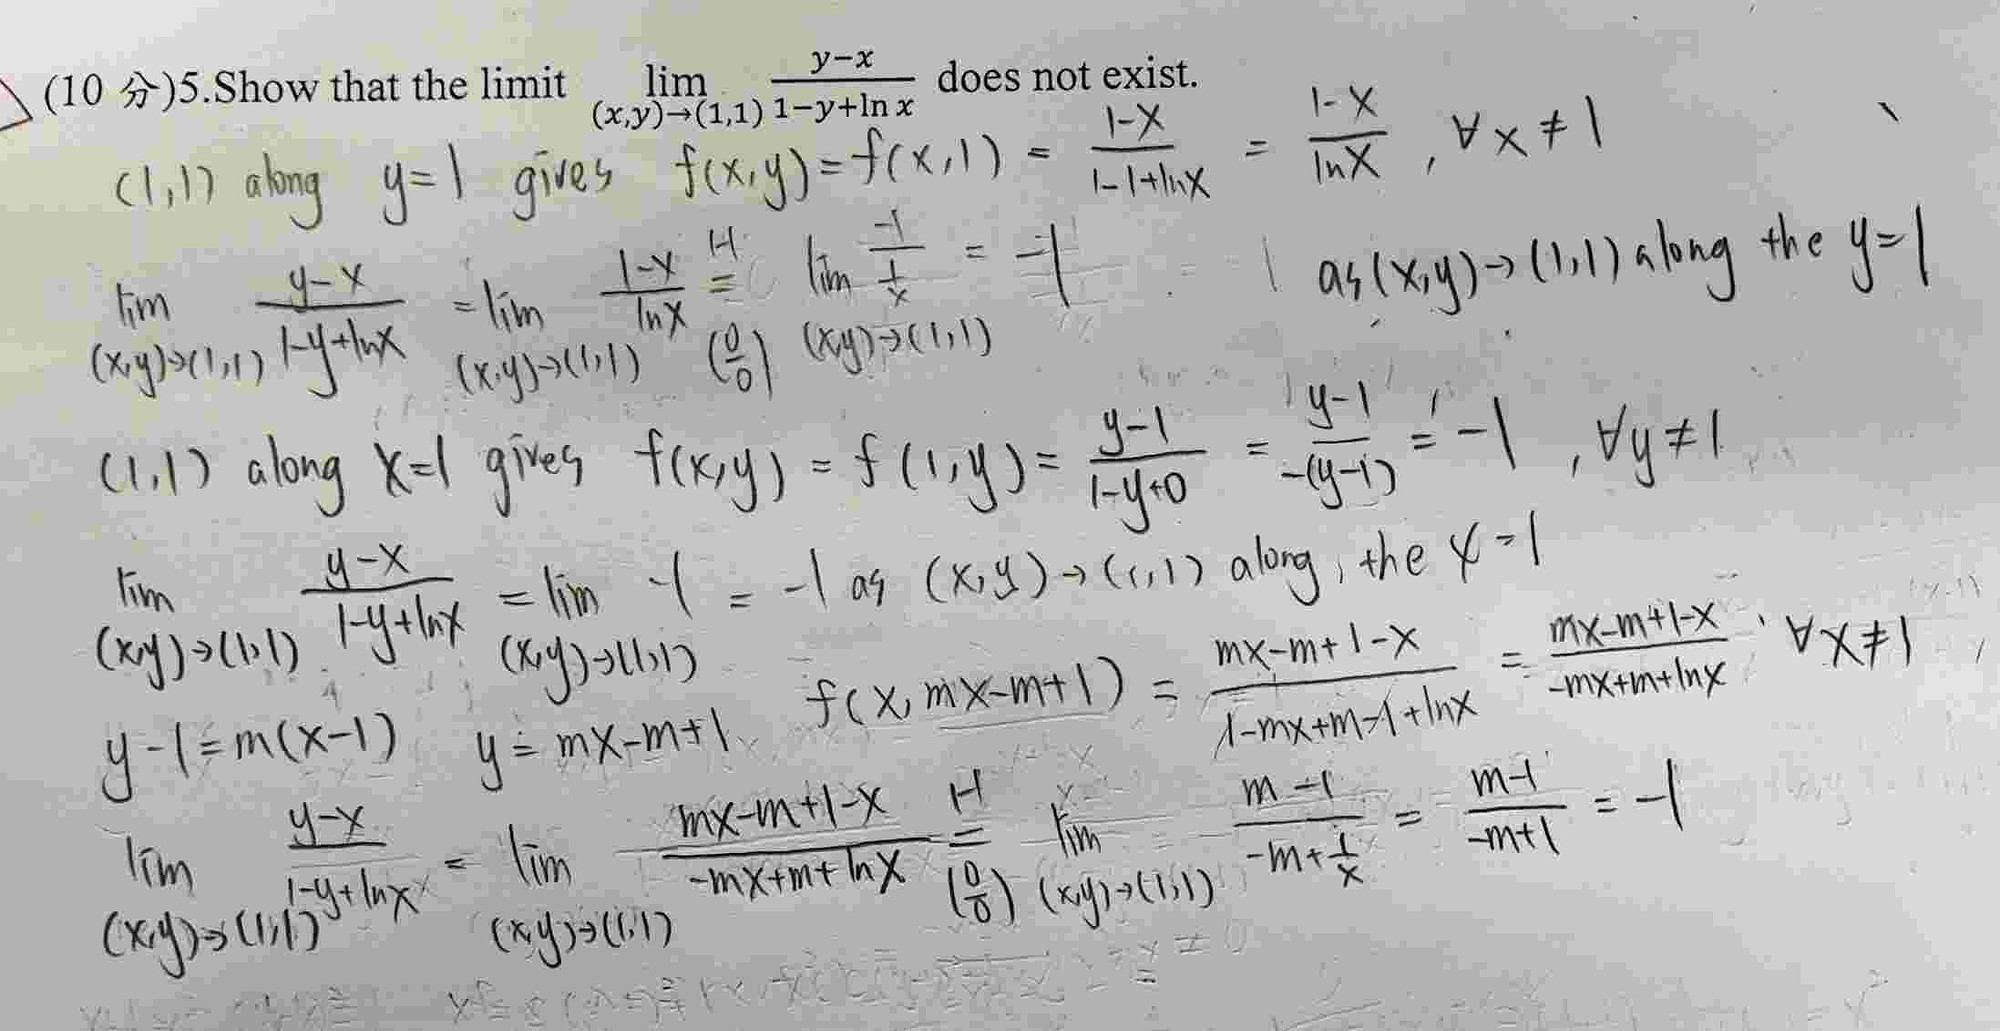 (10 分)5.Show that the limit lim (x,y)→(1,1) (y−x)/(1−y+ln x) does not exist.
(1,1) along y=1 gives f(x,y)=f(x,1) = (1-x)/(1-1+lnx) = (1-x)/(lnx) , ∀x≠1
lim (x,y)→(1,1) (y-x)/(1-y+lnx) = lim (x,y)→(1,1) (1-x)/(lnx) H= (0/0) lim (x,y)→(1,1) (-1)/(1/x) = -1 as (x,y)→(1,1) along the y=1
(1,1) along x=1 gives f(x,y) = f(1,y) = (y-1)/(1-y+0) = (y-1)/(-(y-1)) = -1 , ∀y≠1
lim (x,y)→(1,1) (y-x)/(1-y+lnx) = lim (x,y)→(1,1) -1 = -1 as (x,y)→(1,1) along, the x=1
y-1=m(x-1) y=mx-m+1 f(x,mx-m+1) = (mx-m+1-x)/(1-mx+m-1+lnx) = (mx-m+1-x)/(-mx+m+lnx) , ∀x≠1
lim (x,y)→(1,1) (y-x)/(1-y+lnx) = lim (x,y)→(1,1) (mx-m+1-x)/(-mx+m+lnx) H= (0/0) lim (x,y)→(1,1) (m-1)/(-m+1/x) = (m-1)/(-m+1) = -1